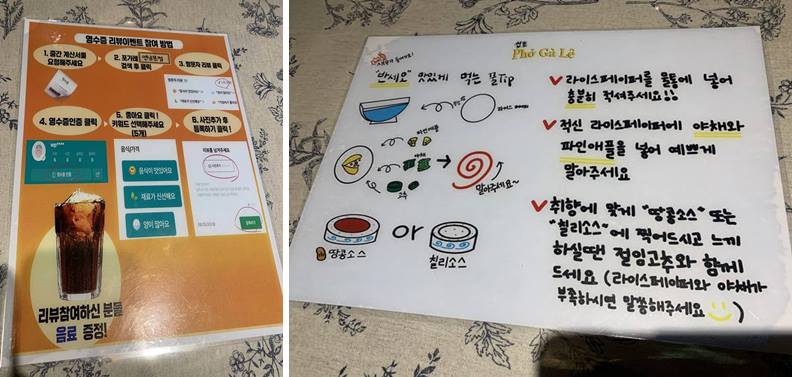 영수증 리뷰이벤트 참여 방법
1. 중간 계산서를
요청해주세요
2. 포가레
검색 후 클릭
3. 방문자 리뷰 클릭
4. 영수증인증 클릭
5. 좋아요 클릭!
키워드 선택해주세요
(5개)
6. 사진추가 후
등록하기 클릭!
음식/가격
음식이 맛있어요
재료가 신선해요
양이 많아요
리뷰를 남겨주세요
리뷰참여하신 분들
음료 증정!
Phở Gà Lê
"반쎄오" 맛있게 먹는 꿀Tip
라이스페이퍼
파인애플
야채
고추
말아주세요~
땅콩소스
or
칠리소스
라이스페이퍼를 물통에 넣어
충분히 적셔주세요!!
적신 라이스페이퍼에 야채와
파인애플을 넣어 예쁘게
말아주세요
취향에 맞게 "땅콩소스" 또는
"칠리소스"에 찍어드시고 느끼
하실땐 절임고추와 함께
드세요 (라이스페이퍼와 야채가
부족하시면 말씀해주세요 )